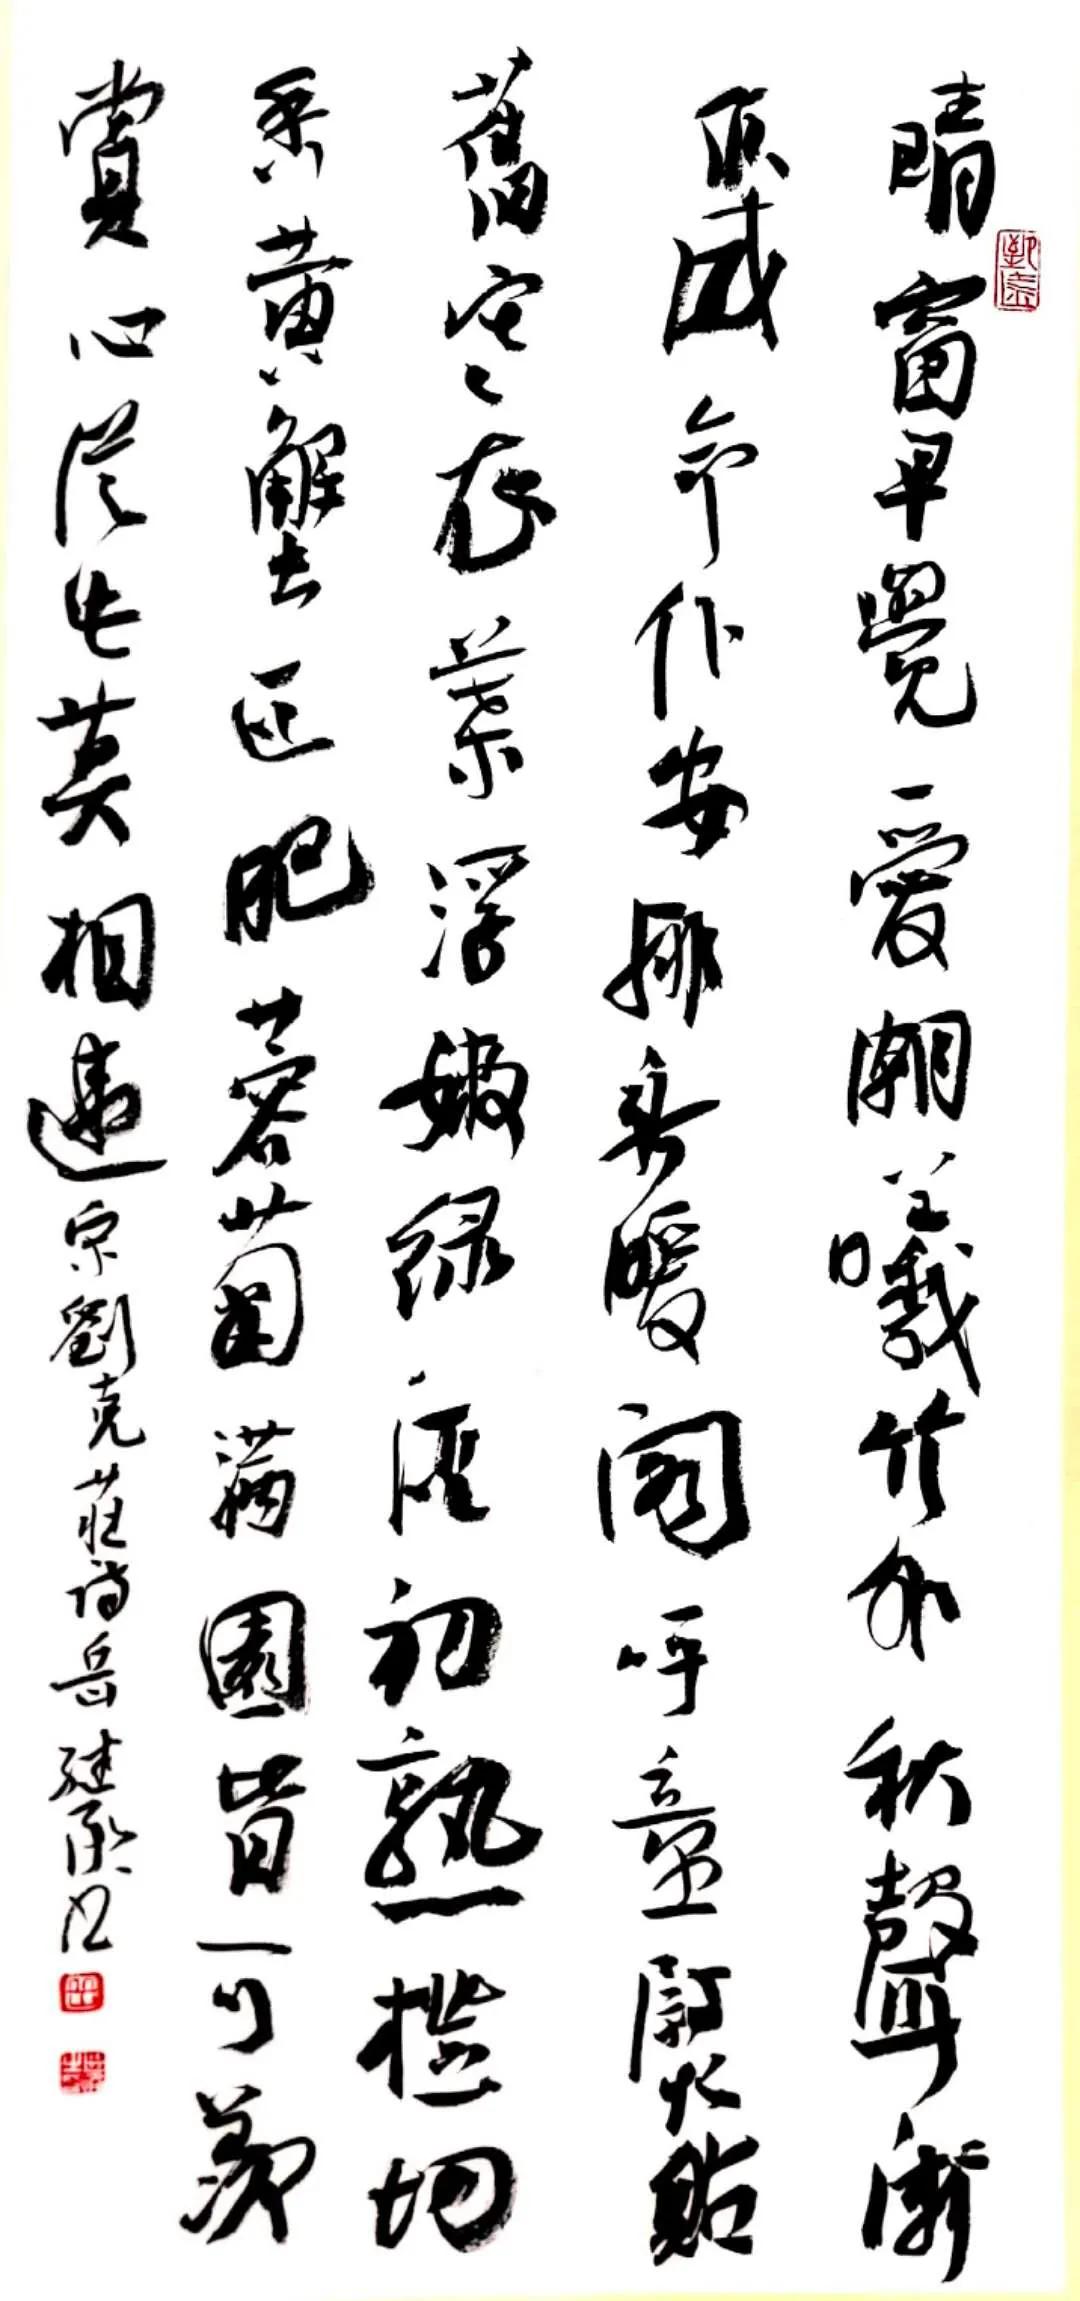 晴窗早覺愛朝曦竹外秋聲漸
作威命仆安排新暖阁呼童熨貼
舊寒衣葉浮嫩绿酒初熟橙切
香黄蟹正肥蓉菊满園皆可羡
賞心從此莫相違宋劉克莊詩岳继承书